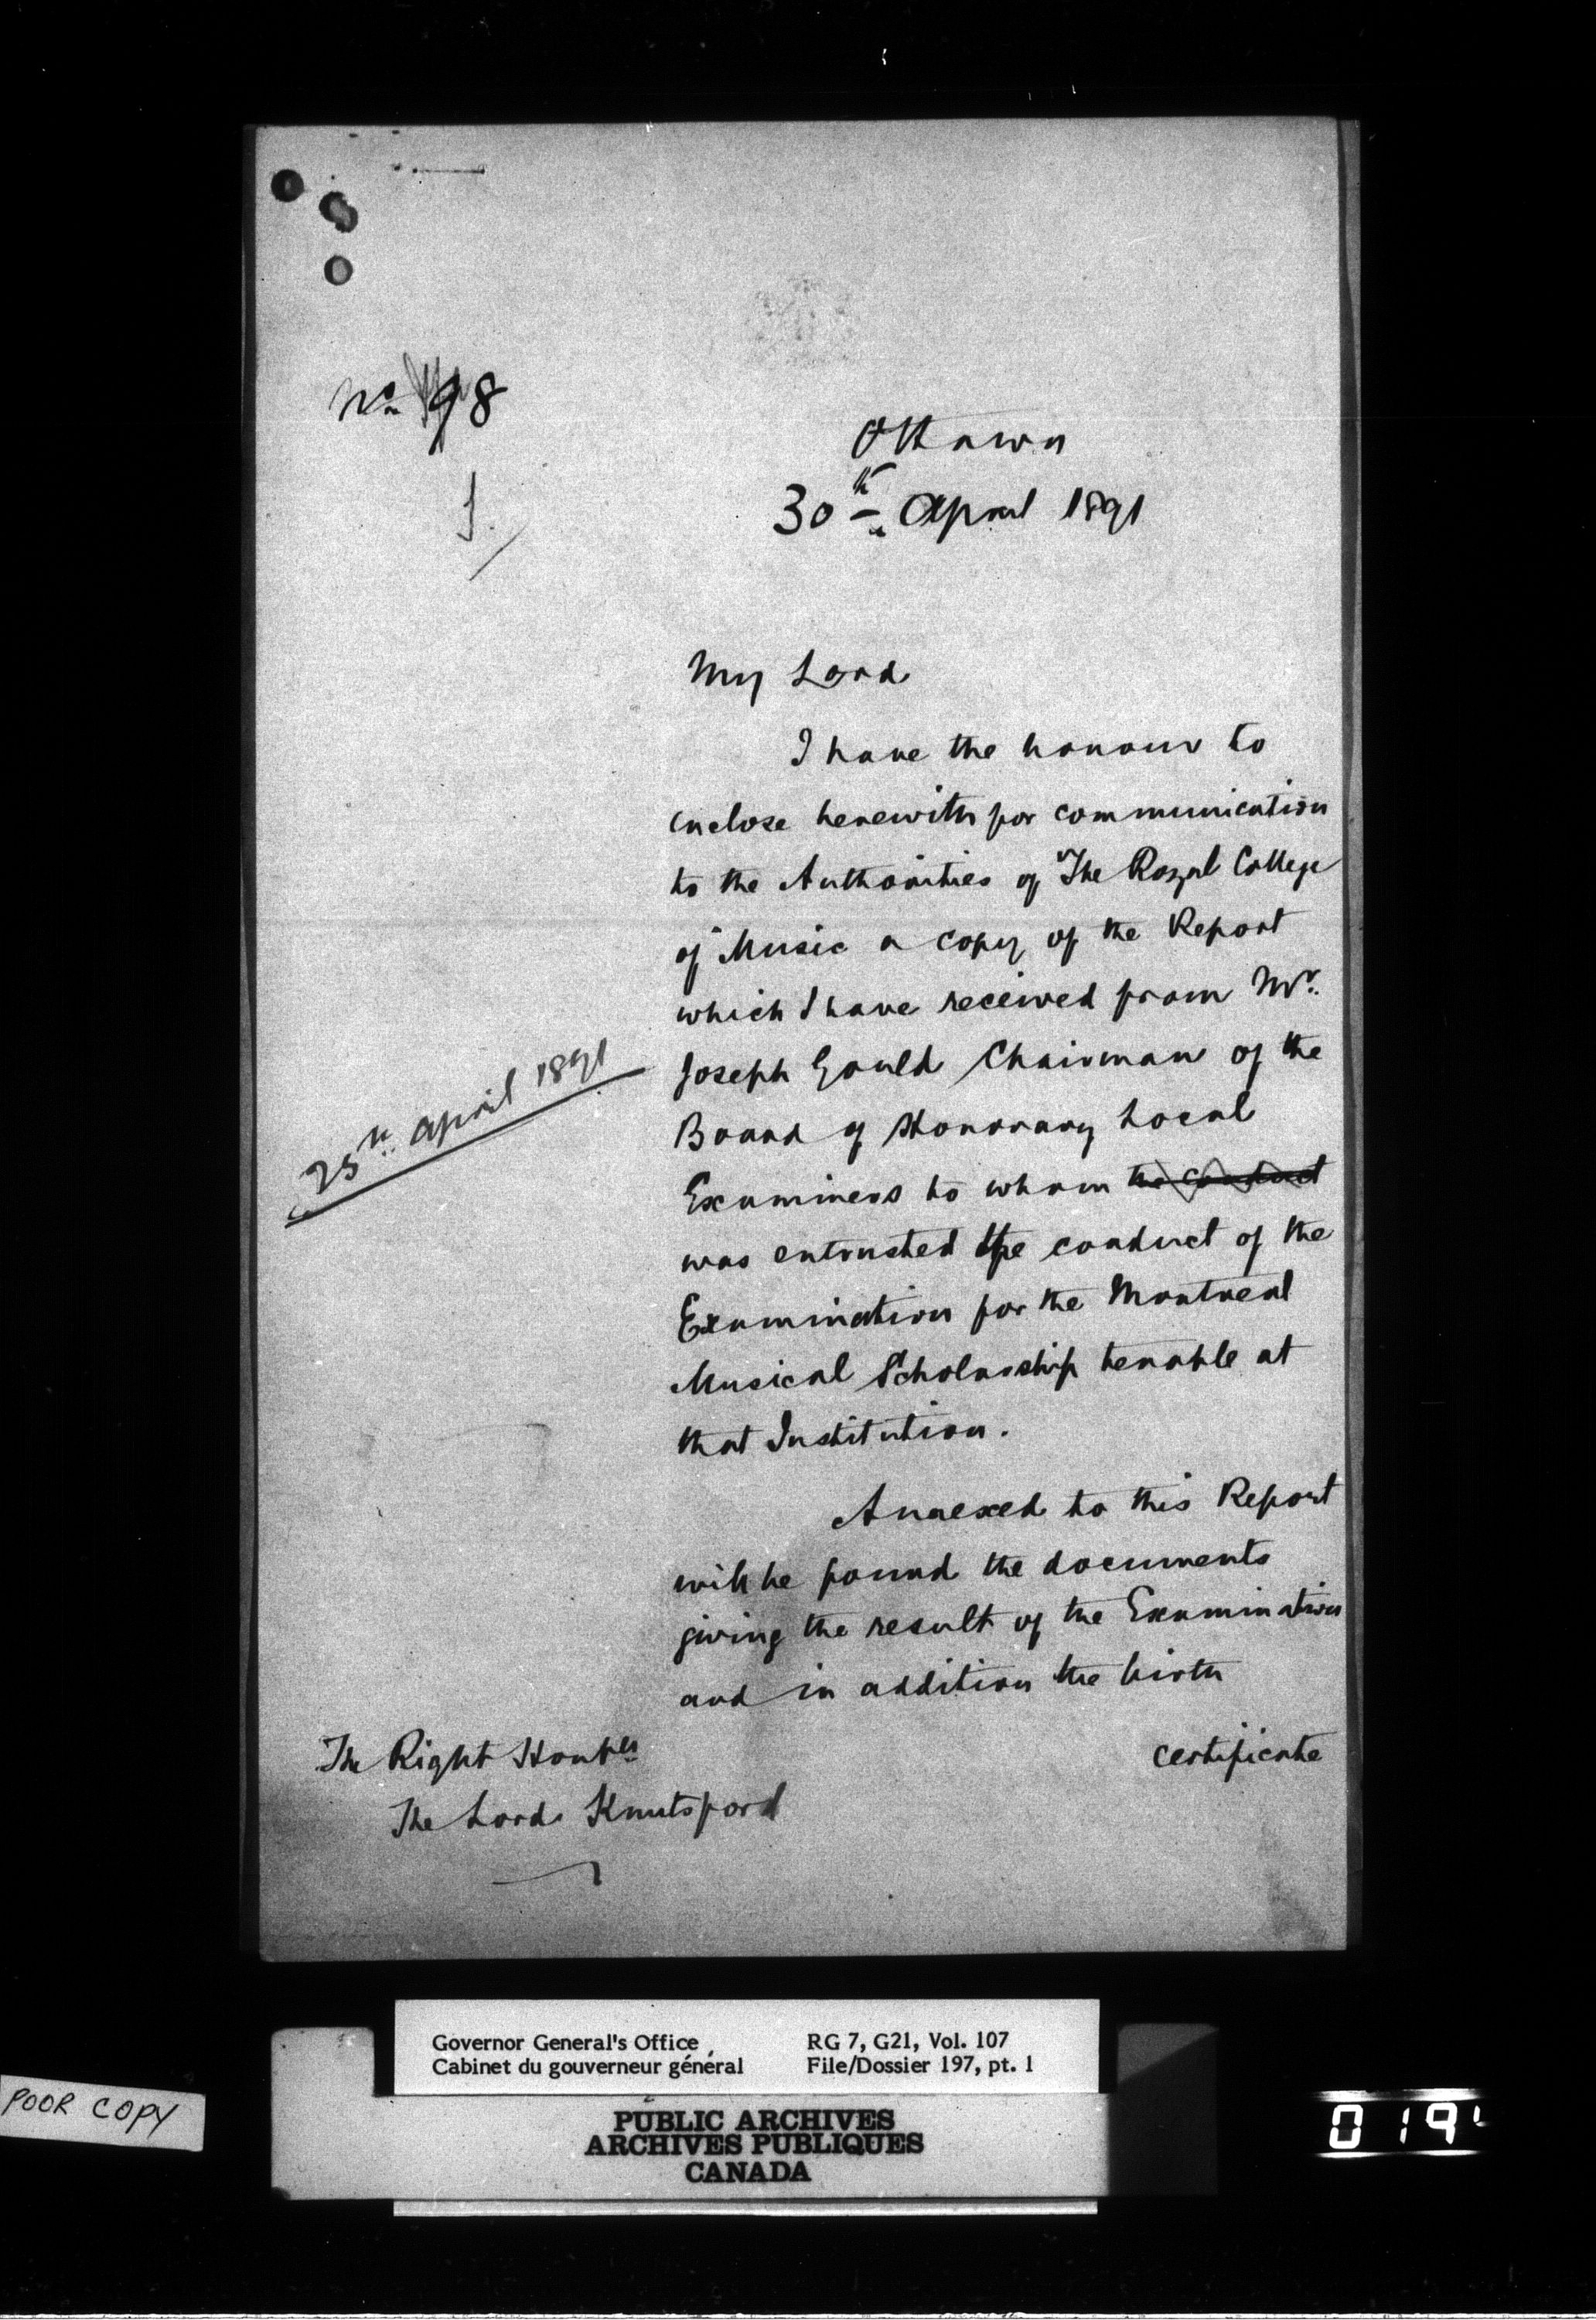 No 98
Ottawa
30th April 1891
My Lord
I have the honour to
enclose herewith for communication
to the Authorities of "The Royal College
of" Music a copy of the Report
which I have received from Mr.
Joseph Gould Chairman of the
25th April 1891
Board of Honorary Local
Examiners to whom the conduct
was entrusted the conduct of the
Examination for the Montreal
Musical Scholarship tenable at
that Institution.
Annexed to this Report
will be found the documents
giving the result of the Examination
and in addition the birth
certificate
The Right Honble
The Lord Knutsford
Governor General's Office
Cabinet du gouverneur général
RG 7, G21, Vol. 107
File/Dossier 197, pt. 1
POOR COPY
PUBLIC ARCHIVES
ARCHIVES PUBLIQUES
CANADA
019